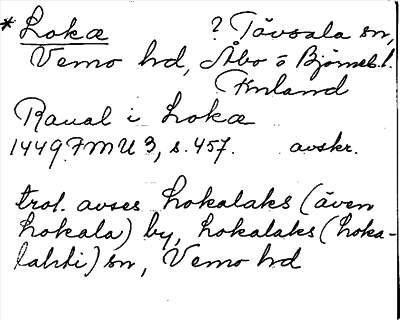 * Lokæ ? Tövsala sn,
Vemo hd, Åbo o Björneb. l.
Finland
Raual i Lokæ
1449 FMU 3, s. 457. avskr.
trol. avses Lokalaks (även
Lokala) by, Lokalaks (Loka-
lahti) sn, Vemo hd